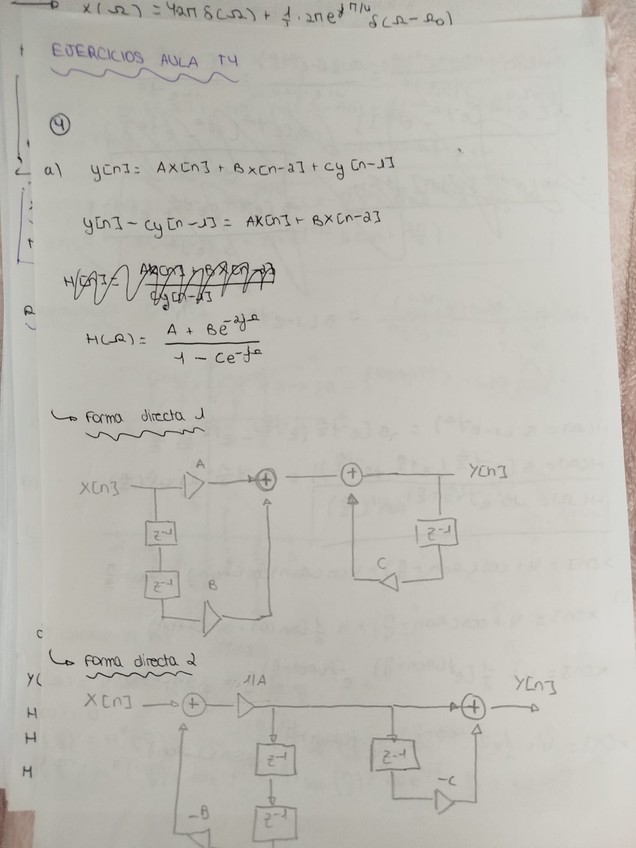 X(Ω) = 42π δ(Ω) + 1/7 · 2π e^jπ/4 δ(Ω - Ω0)
EJERCICIOS AULA T4
4
a) y[n] = AX[n] + Bx[n-2] + Cy[n-1]
y[n] - Cy[n-1] = AX[n] + BX[n-2]
H(Ω) = A + Be^-2jΩ / 1 - Ce^-jΩ
↳ Forma directa 1
X[n] A + + Y[n]
z^-1 z^-1
z^-1 C
B
↳ Forma directa 2
X[n] + 1/A + Y[n]
z^-1 z^-1
-C
-B z^-1